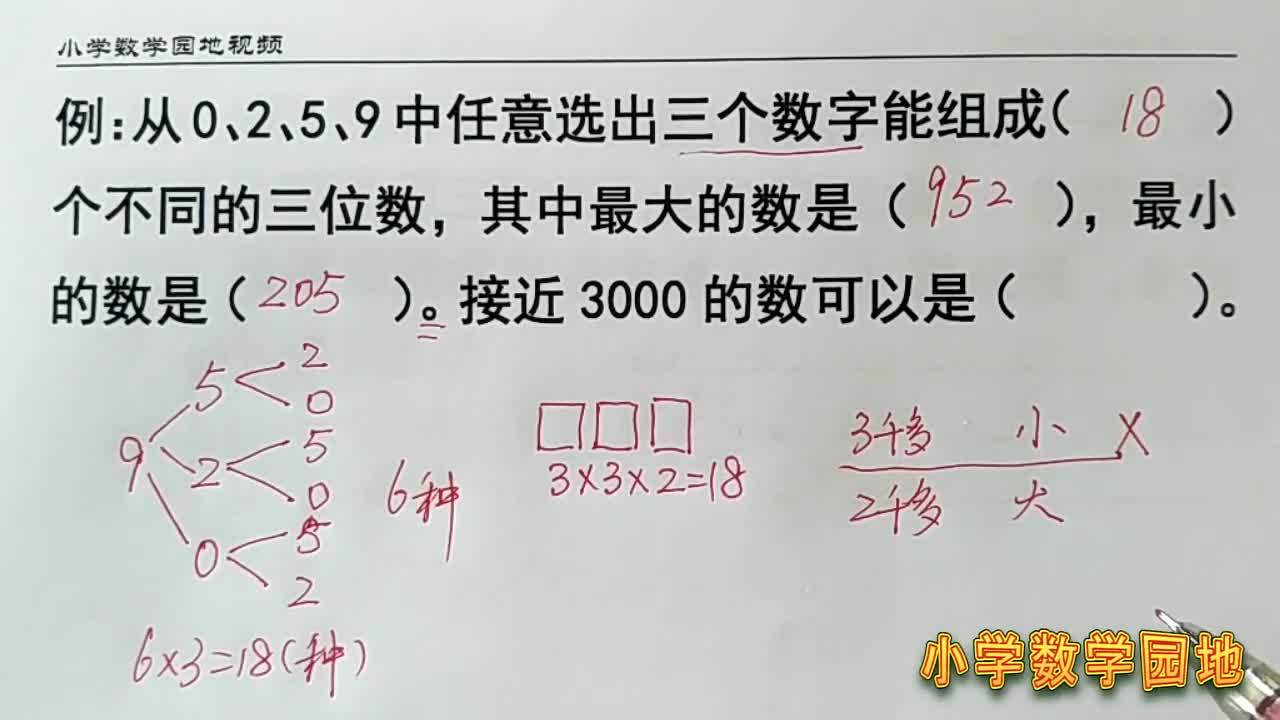 小学数学园地视频
例:从0、2、5、9中任意选出三个数字能组成( 18 )
个不同的三位数,其中最大的数是( 952 ),最小
的数是( 205 )。接近3000的数可以是( )。
9
5 2
0
2 5
0
0 5
2
6种
6×3=18(种)
□□□
3×3×2=18
3千多 小 X
2千多 大
小学数学园地